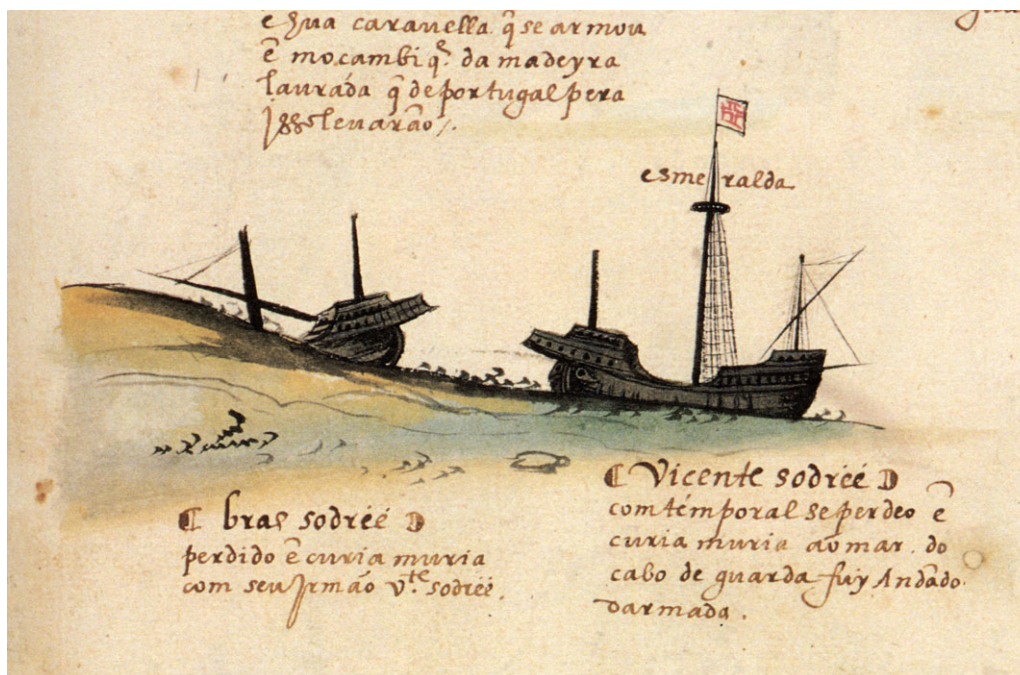 e sua caravella q̃ se armou
ẽ moçambiq̃. da madeyra
laurada q̃ de portugal pera
Jsso levarão /.
esmeralda
bras sodréé
perdido ẽ curia muria
com seu Jrmão v.te sodréé.
Vicente sodréé
com témporal se perdeo ẽ
curia muria ao mar. do
cabo de guarda fuy Andãdo.
darmada.